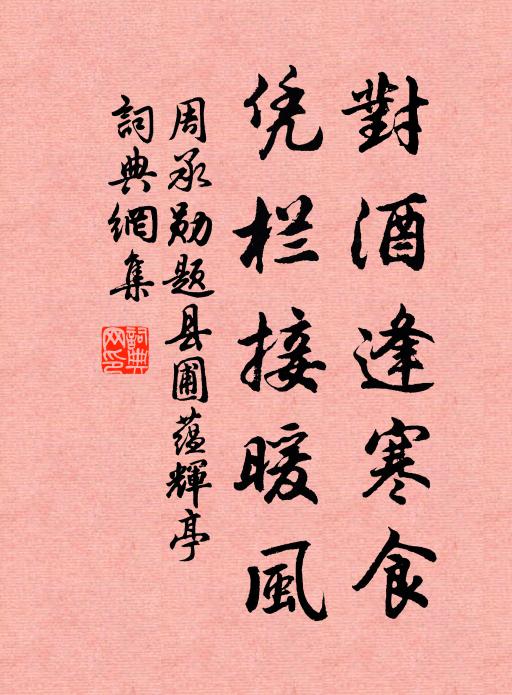 對酒逢寒食
凭栏接暖風
周承勋题县圃蕴輝亭
詞典網集
詞典网印